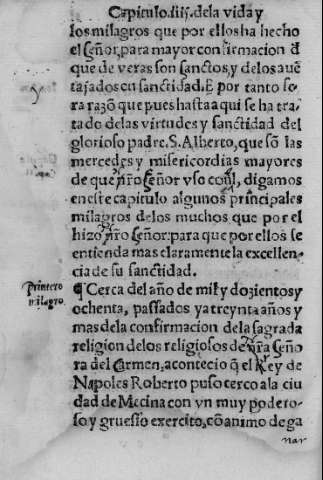 Capitulo.iiij.dela vida y
los milagros que por ellos ha hecho
el señor, para mayor confirmacion đ
que de veras son sanctos, y delos auē
tajados en sanctidad. E por tanto se-
ra razō que pues hasta aqui se ha tra-
tado delas virtudes y sanctidad del
glorioso padre. S. Alberto, que sō las
mercedes y misericordias mayores
de que ñro señor vso conel, digamos
eneste capitulo algunos principales
milagros delos muchos que por el
hizo ñro señor: para que por ellos se
entienda mas claramente la excellen-
cia de su sanctidad.
Primero
milagro.
¶ Cerca del año de mil y dozientos y
ochenta, passados ya treynta años y
mas dela confirmacion dela sagrada
religion delos religiosos de ñra Seño
ra del Carmen, acontecio q̄ el Rey de
Napoles Roberto puso cerco ala ciu
dad de Mecina con vn muy podero-
so y gruesso exercito, cō animo de ga
nar